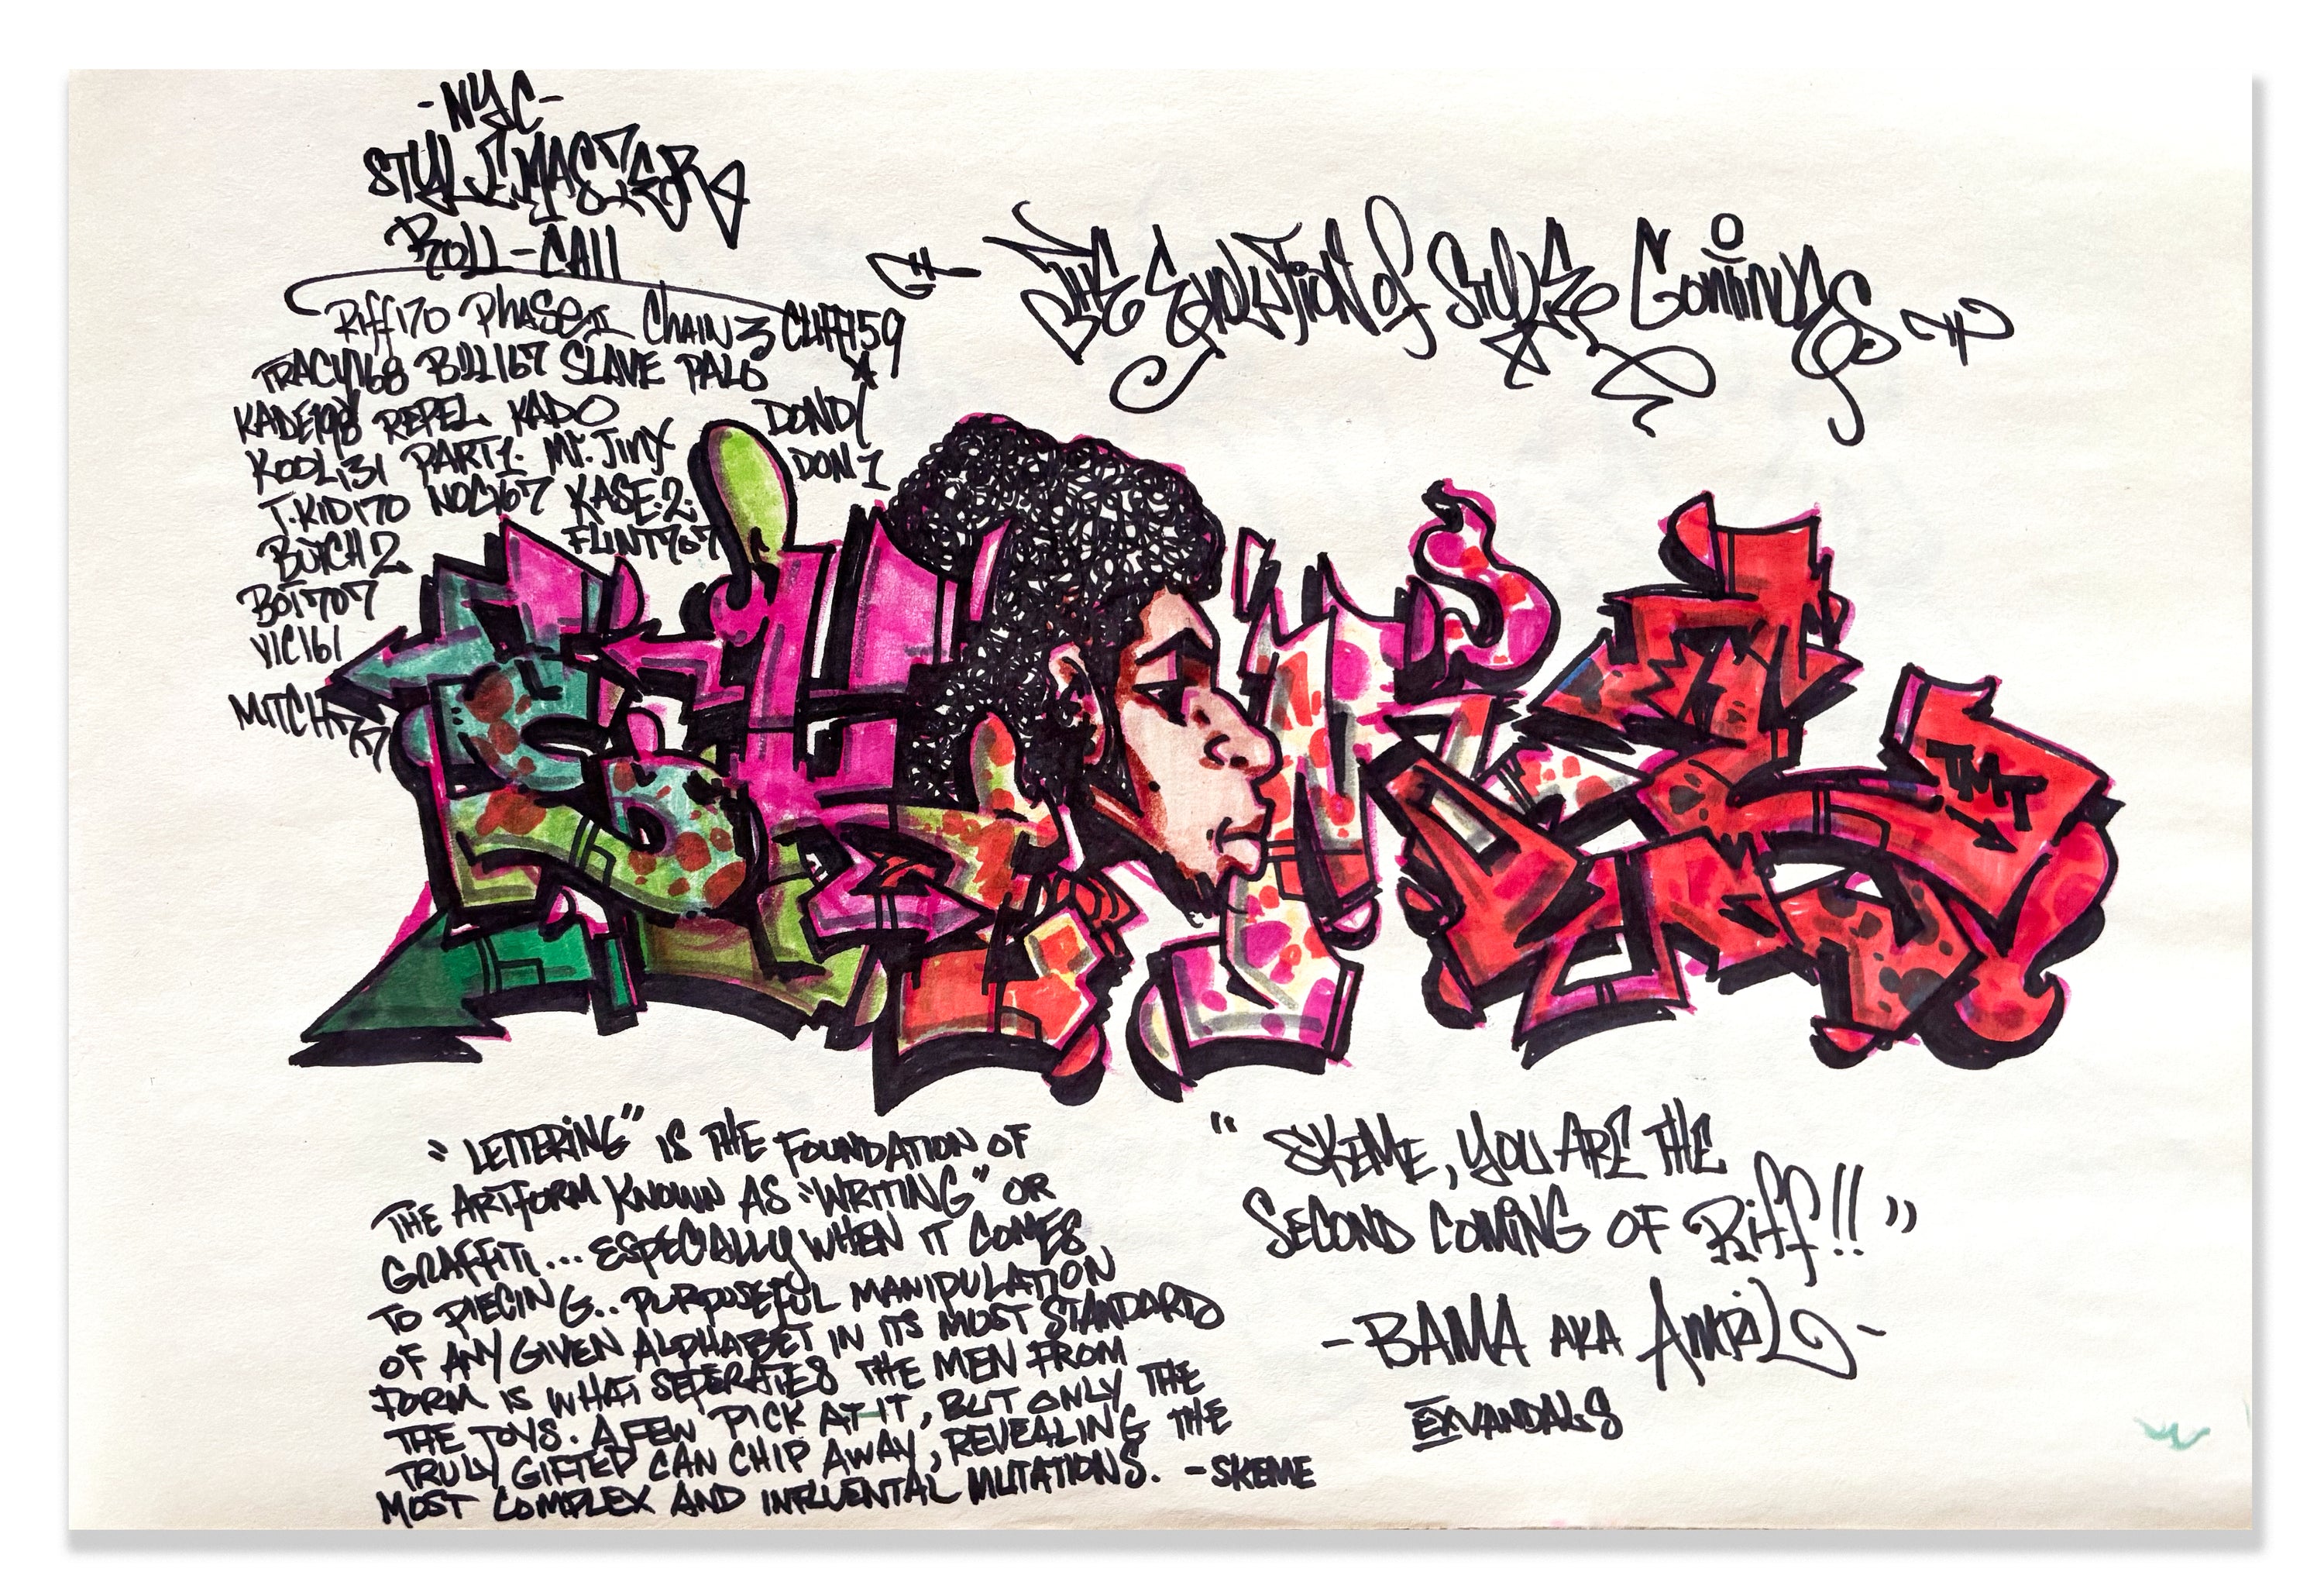 -NYC-
STYLEMASTER
ROLL-CALL
Riff170 PHASE II CHAIN 3 CLIFF159
TRACY168 BILL167 SLAVE PAL
KADE198 REPEL KADO DONDI
KOOL131 PART1. Mr. Jinx DON 1
T.KID170 NOC167 KASE.2.
BUTCH 2 FLINT707
BOT707
VIC161
MITCH77
THE EVOLUTION of STYLE CONTINUES
SKEME
TMT
"LETTERING" IS THE FOUNDATION OF
THE ARTFORM KNOWN AS "WRITING" OR
GRAFFITI... ESPECIALLY WHEN IT COMES
TO PIECING.. PURPOSEFUL MANIPULATION
OF ANY GIVEN ALPHABET IN ITS MOST STANDARD
FORM IS WHAT SEPERATES THE MEN FROM
THE TOYS. A FEW PICK AT IT, BUT ONLY THE
TRULY GIFTED CAN CHIP AWAY, REVEALING THE
MOST COMPLEX AND INFLUENTAL MUTATIONS. -SKEME
"SKEME, YOU ARE THE
SECOND COMING OF Riff!!"
-BAMA AKA AMRIL-
EXVANDALS